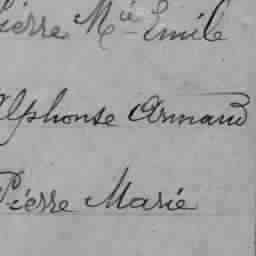 Pierre Mie Emile
Alphonse Armand
Pierre Marie